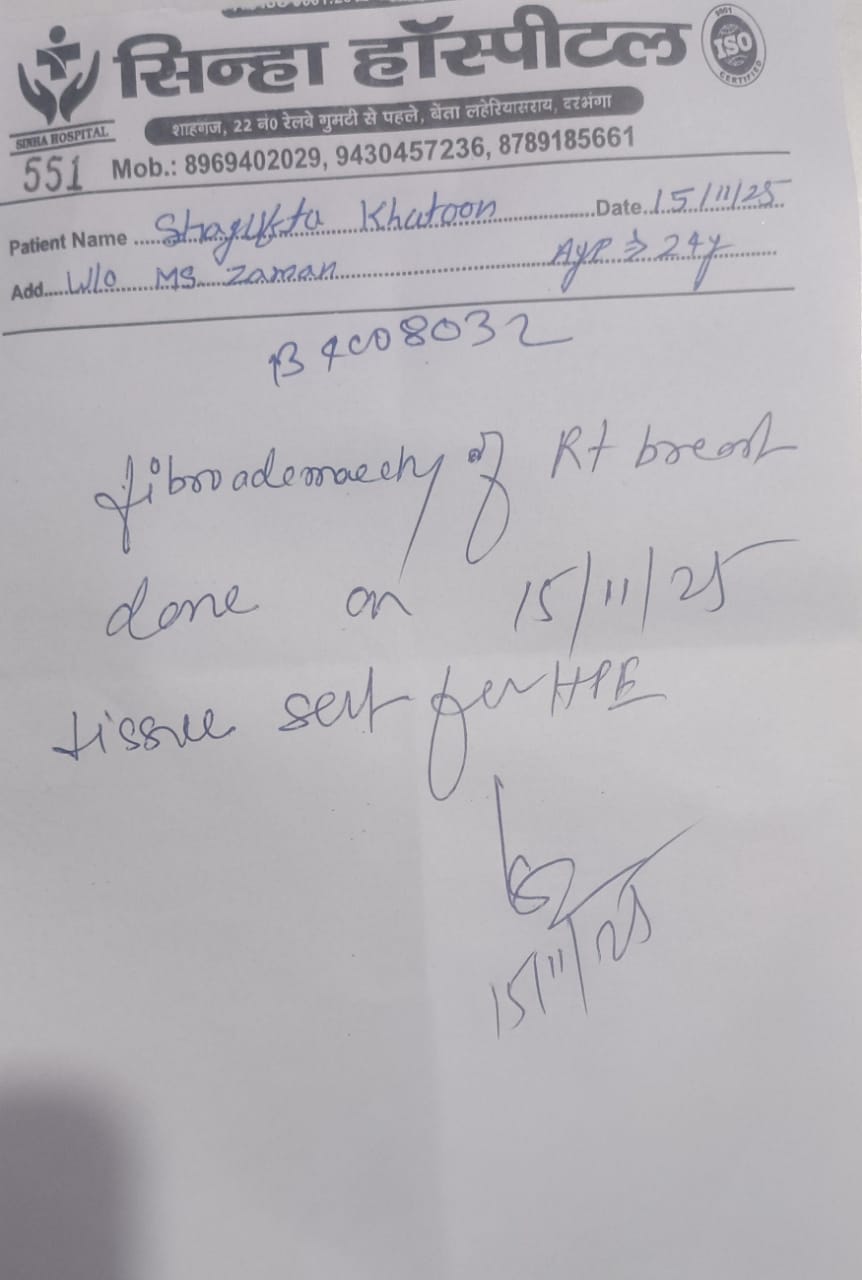 सिन्हा हॉस्पीटल
ISO
9001
CERTIFIED
SINHA HOSPITAL
शाहगंज, 22 नं0 रेलवे गुमटी से पहले, बेंता लहेरियासराय, दरभंगा
551 Mob.: 8969402029, 9430457236, 8789185661
Patient Name Shagufta Khatoon Date 15/11/25
Add. W/o MS. Zaman Age → 24y
fibroadenoectomy of Rt breast
done on 15/11/25
tissue sent for HPE
15/11/25